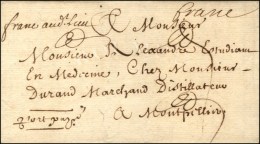 franc aud. lieu A Monsieur franc
Monsieur Alexandre Etudiant
En Medecine, Chez Monsieur
Durand Marchand Distillateur
port payé A Montpellier